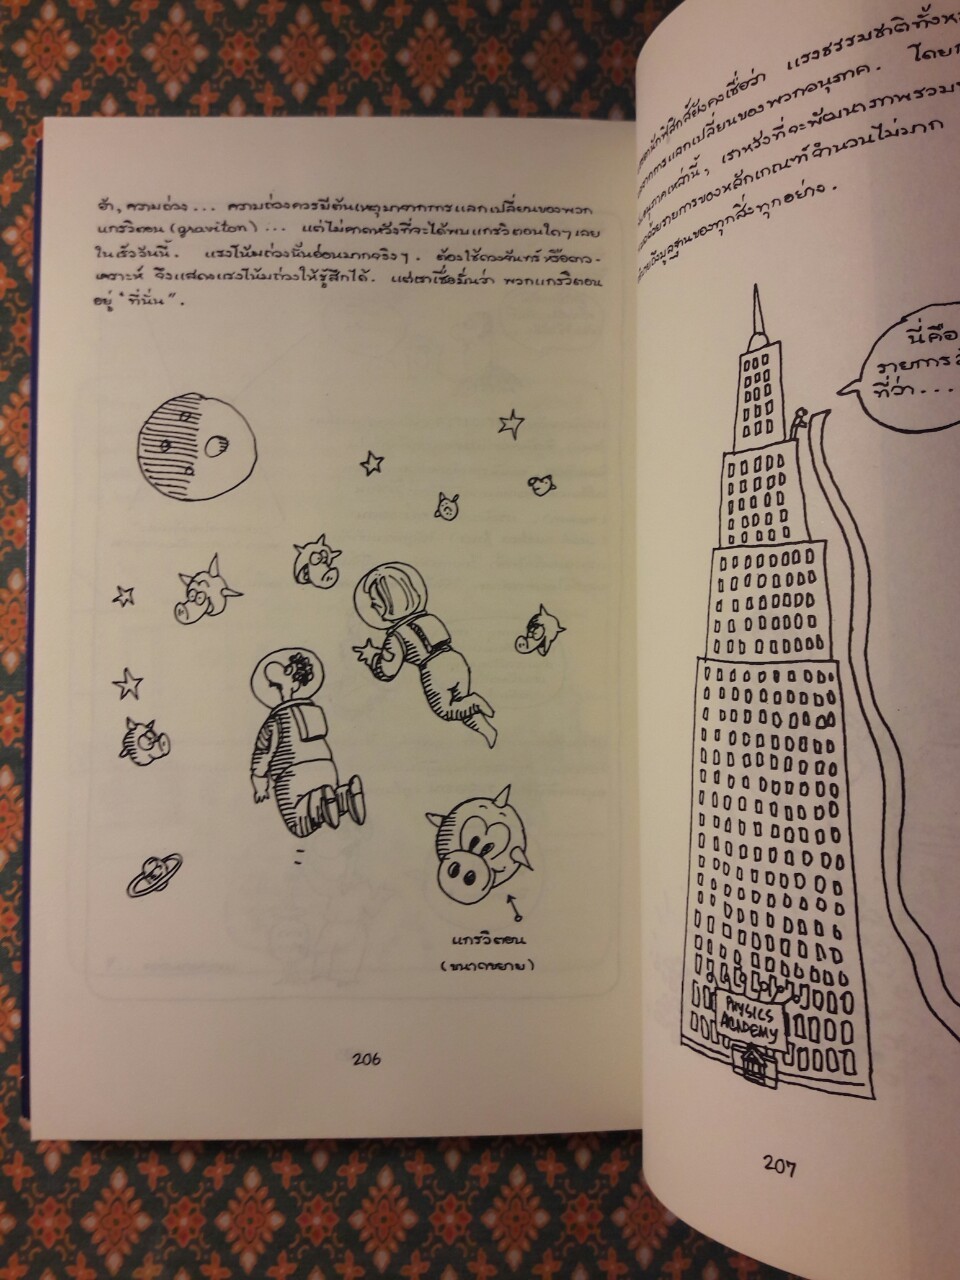 อ้า, ความถ่วง ... ความถ่วงควรมีต้นเหตุมาจากการแลกเปลี่ยนของพวก
แกรวิตอน (graviton) ... แต่ไม่คาดหวังที่จะได้พบแกรวิตอนใดๆ เลย
ในเร็ววันนี้. แรงโน้มถ่วงนั้นอ่อนมากจริงๆ. ต้องใช้ดวงจันทร์ หรือดาว-
เคราะห์ จึงแสดงแรงโน้มถ่วงให้รู้สึกได้. แต่เราเชื่อมั่นว่า พวกแกรวิตอน
อยู่ "ที่นั่น".
แกรวิตอน
(ขนาดขยาย)
206
นักฟิสิกส์ยังคงเชื่อว่า แรงธรรมชาติทั้ง
จากการแลกเปลี่ยนของพวกอนุภาค.
อนุภาคเหล่านี้, เราหวังที่จะพัฒนาภาพรวม
ด้วยรายการของหลักเกณฑ์จำนวนไม่มาก
มูลฐานของทุกสิ่งทุกอย่าง.
นี่คือ
รายการ
ที่ว่า ...
PHYSICS
ACADEMY
207